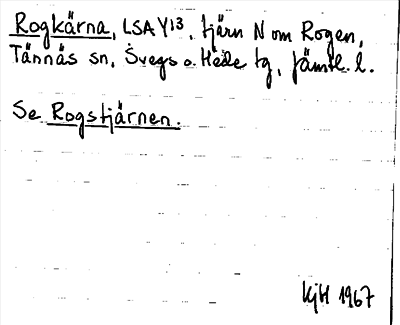 Rogkärna, LSA Y13, tjärn N om Rogen,
Tännäs sn, Svegs o. Hede tg, Jämtl. l.
Se Rogstjärnen.
KjH 1967